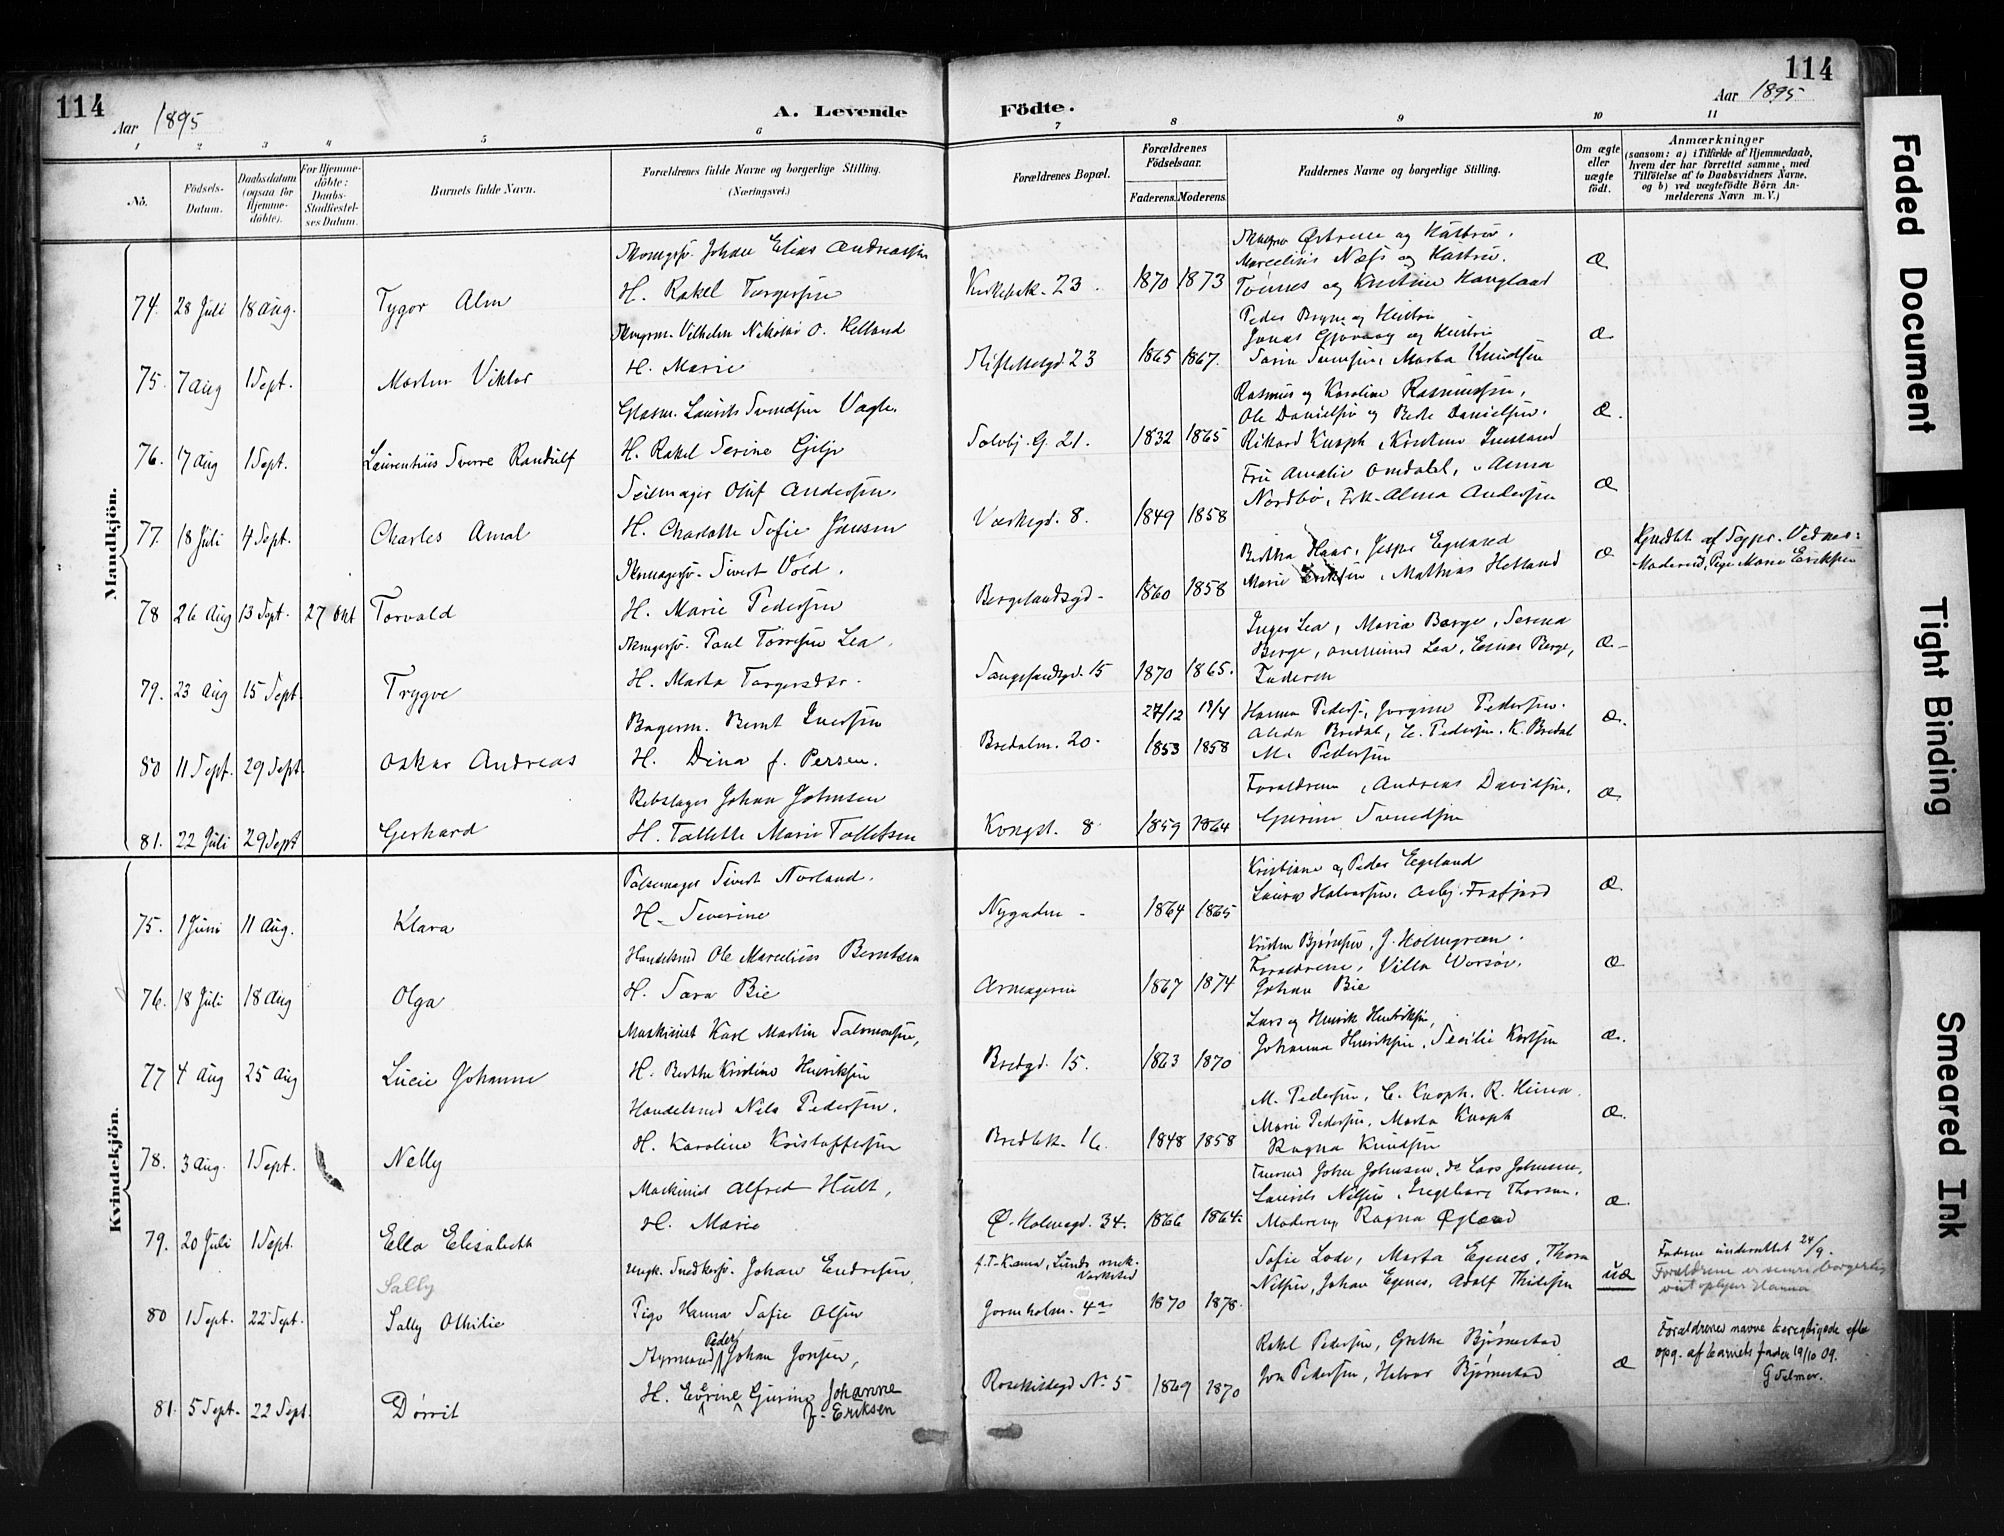 114
114
Aar 1895
A. Levende
Födte.
Aar 1895
1 2 3 4 5 6 7 8 9 10 11
No.
Födsels-Datum.
Daabsdatum (ogsaa for Hjemme-döbte).
For Hjemme-döbte: Daabs-Stadfæstelses Datum.
Barnets fulde Navn.
Forældrenes fulde Navne og borgerlige Stilling.
(Næringsvei.)
Forældrenes Bopæl.
Forældrenes Födselsaar.
Faderens. Moderens.
Faddernes Navne og borgerlige Stilling.
Om ægte eller uægte födt.
Anmærkninger
(saasom: a) i Tilfælde af Hjemmedaab,
hvem der har forrettet samme, med
Tilföielse af to Daabsvidners Navne.
og b) ved uægtefödte Börn An-
melderens Navn m. V.)
Mandkjön.
Johan Elias Andreassen
74. 28 Juli 18 Aug. Tygor Alm H. Rakel Torgersen 23. 1870 1873 Æ
Marcelius Næss og Hustru.
Tönnes og Kristine Haugland
Vilhelm Nikolai O. Helland
75. 7 Aug 1 Sept. Morten Viktor H. Marie 23 1865 1867. Æ
Peder Bryne og Hustru
Marta Knudsen
Laurits Svendsen Vagle.
76. 17 Aug 1 Sept. Laurentius Sverre Randulf H. Rakel Serine Gilje Solvbj. G. 21. 1832 1865 Æ.
Rasmus og Karoline Rasmussen,
Ole Danielsen og Berte Danielsen.
Rikard Knoph
Seilmager Oluf Andersen.
77. 18 Juli 4 Sept. Charles Amal H. Charlotte Sofie Jansen 8. 1849 1858 Æ
Fru Amalie Omdal, Anna
Nordbö, Frk. Alma Andersen
Sivert Vold.
78 26 Aug 13 Sept. 27 Okt Torvald H. Marie Pedersen Bergelandsgd. 1860 1858 Æ
Bertha Haar, Jesper Egeland
Marie Eriksen, Mathias Hetland
Moderen, Pige Marie Eriksen
Paul Torresen Lea.
79. 23 Aug 15 Sept. Trygve H. Marta Torgersdtr. 15 1870 1865. Æ
Inger Lea, Maria Berge, Serena
Berge, Lea, Einar Berge,
Faderen
Bagerm. Bernt Iversen
80 11 Sept. 29 Sept. Oskar Andreas H. Dina f. Persen. Bredalm. 20. 27/12 1853 19/4 1858 Æ.
Hanna Peders., Jorgine Pedersen.
Alida Bredal, E. Pedersen. K. Bredal
M. Pedersen
Rebslager Johan Johnsen
81. 22 Juli 29 Sept Gerhard H. Tallette Marie Tollefsen Kongst. 8 1859 1864 Æ.
Forældrene, Andreas Davidsen,
Gurine Svendsen
Kvindekjön.
Pølsemager Sivert Norland.
75. 1 Juni 11 Aug. Klara H. Severine Nygaden 1864 1865 Æ.
Kristiane og Peder Egeland
Laura Halvorsen. Asbj. Frafjord
Handelsmd Ole Marcelius Berntsen
76. 18 Juli 18 Aug Olga H. Sara Bie Arneageren 1867 1874 Æ
Kristen Bjørnsen, J. Holmgreen.
Forældrene, Villa Worsöe,
Johan Bie
Maskinist Karl Martin Salmonsen,
77 4 Aug 25 Aug Lucie Johanne H. Berthe Kristine Henriksen Bredgd. 15. 1863 1870 Æ.
Lars og Henrik Henriksen,
Johanna Henriksen, Secilie Karlsen
Handelsmd Nils Pedersen.
78. 3 Aug. 1 Sept. Nelly H. Karoline Kristoffersen Bredbk. 16. 1848 1858 Æ.
M. Pedersen, C. Knoph. R. Hinna.
Marie Pedersen, Marta Knoph
Ragna Knudsen
Maskinist Alfred Hult,
79. 20 Juli 1 Sept. Ella Elisabeth H. Marie Ø. Holmegd. 34. 1866 1864. Æ
John Johnsen, do Lars Johnsen,
Laurits Nilsen, Ingeborg Thorsen.
Moderen, Ragna Øgland
Ungk. Snedkersv. Johan Endresen,
Sally
80 1 Sept. 22 Sept. Sally Othilie Pige Hanna Sofie Olsen
f. T. Kanna, Lunds mek. Værksted
Jormholm. 4a 1870 1878. uæ
Sofie Lode, Marta Egenes, Thora
Nilsen, Johan Egenes, Adolf Thilesen
Fadern underrettet 24/9.
Forældrene er senere borgerlig
viet oplyser Hanna
Peder
Johan Jonsen,
81. 5 Sept. 22 Sept. Dörrit H. Evrine Gurine Johanne
f. Eriksen
Roskildegd No 5 1869 1870 Æ
Rakel Pedersen, Grethe Bjørnestad
Jon Pedersen, Halvor Bjørnestad
Forældrenes navne beregtigede efter
opg. af barnets fader 19/10 09.
G Selmer.
Faded Document
Tight Binding
Smeared Ink